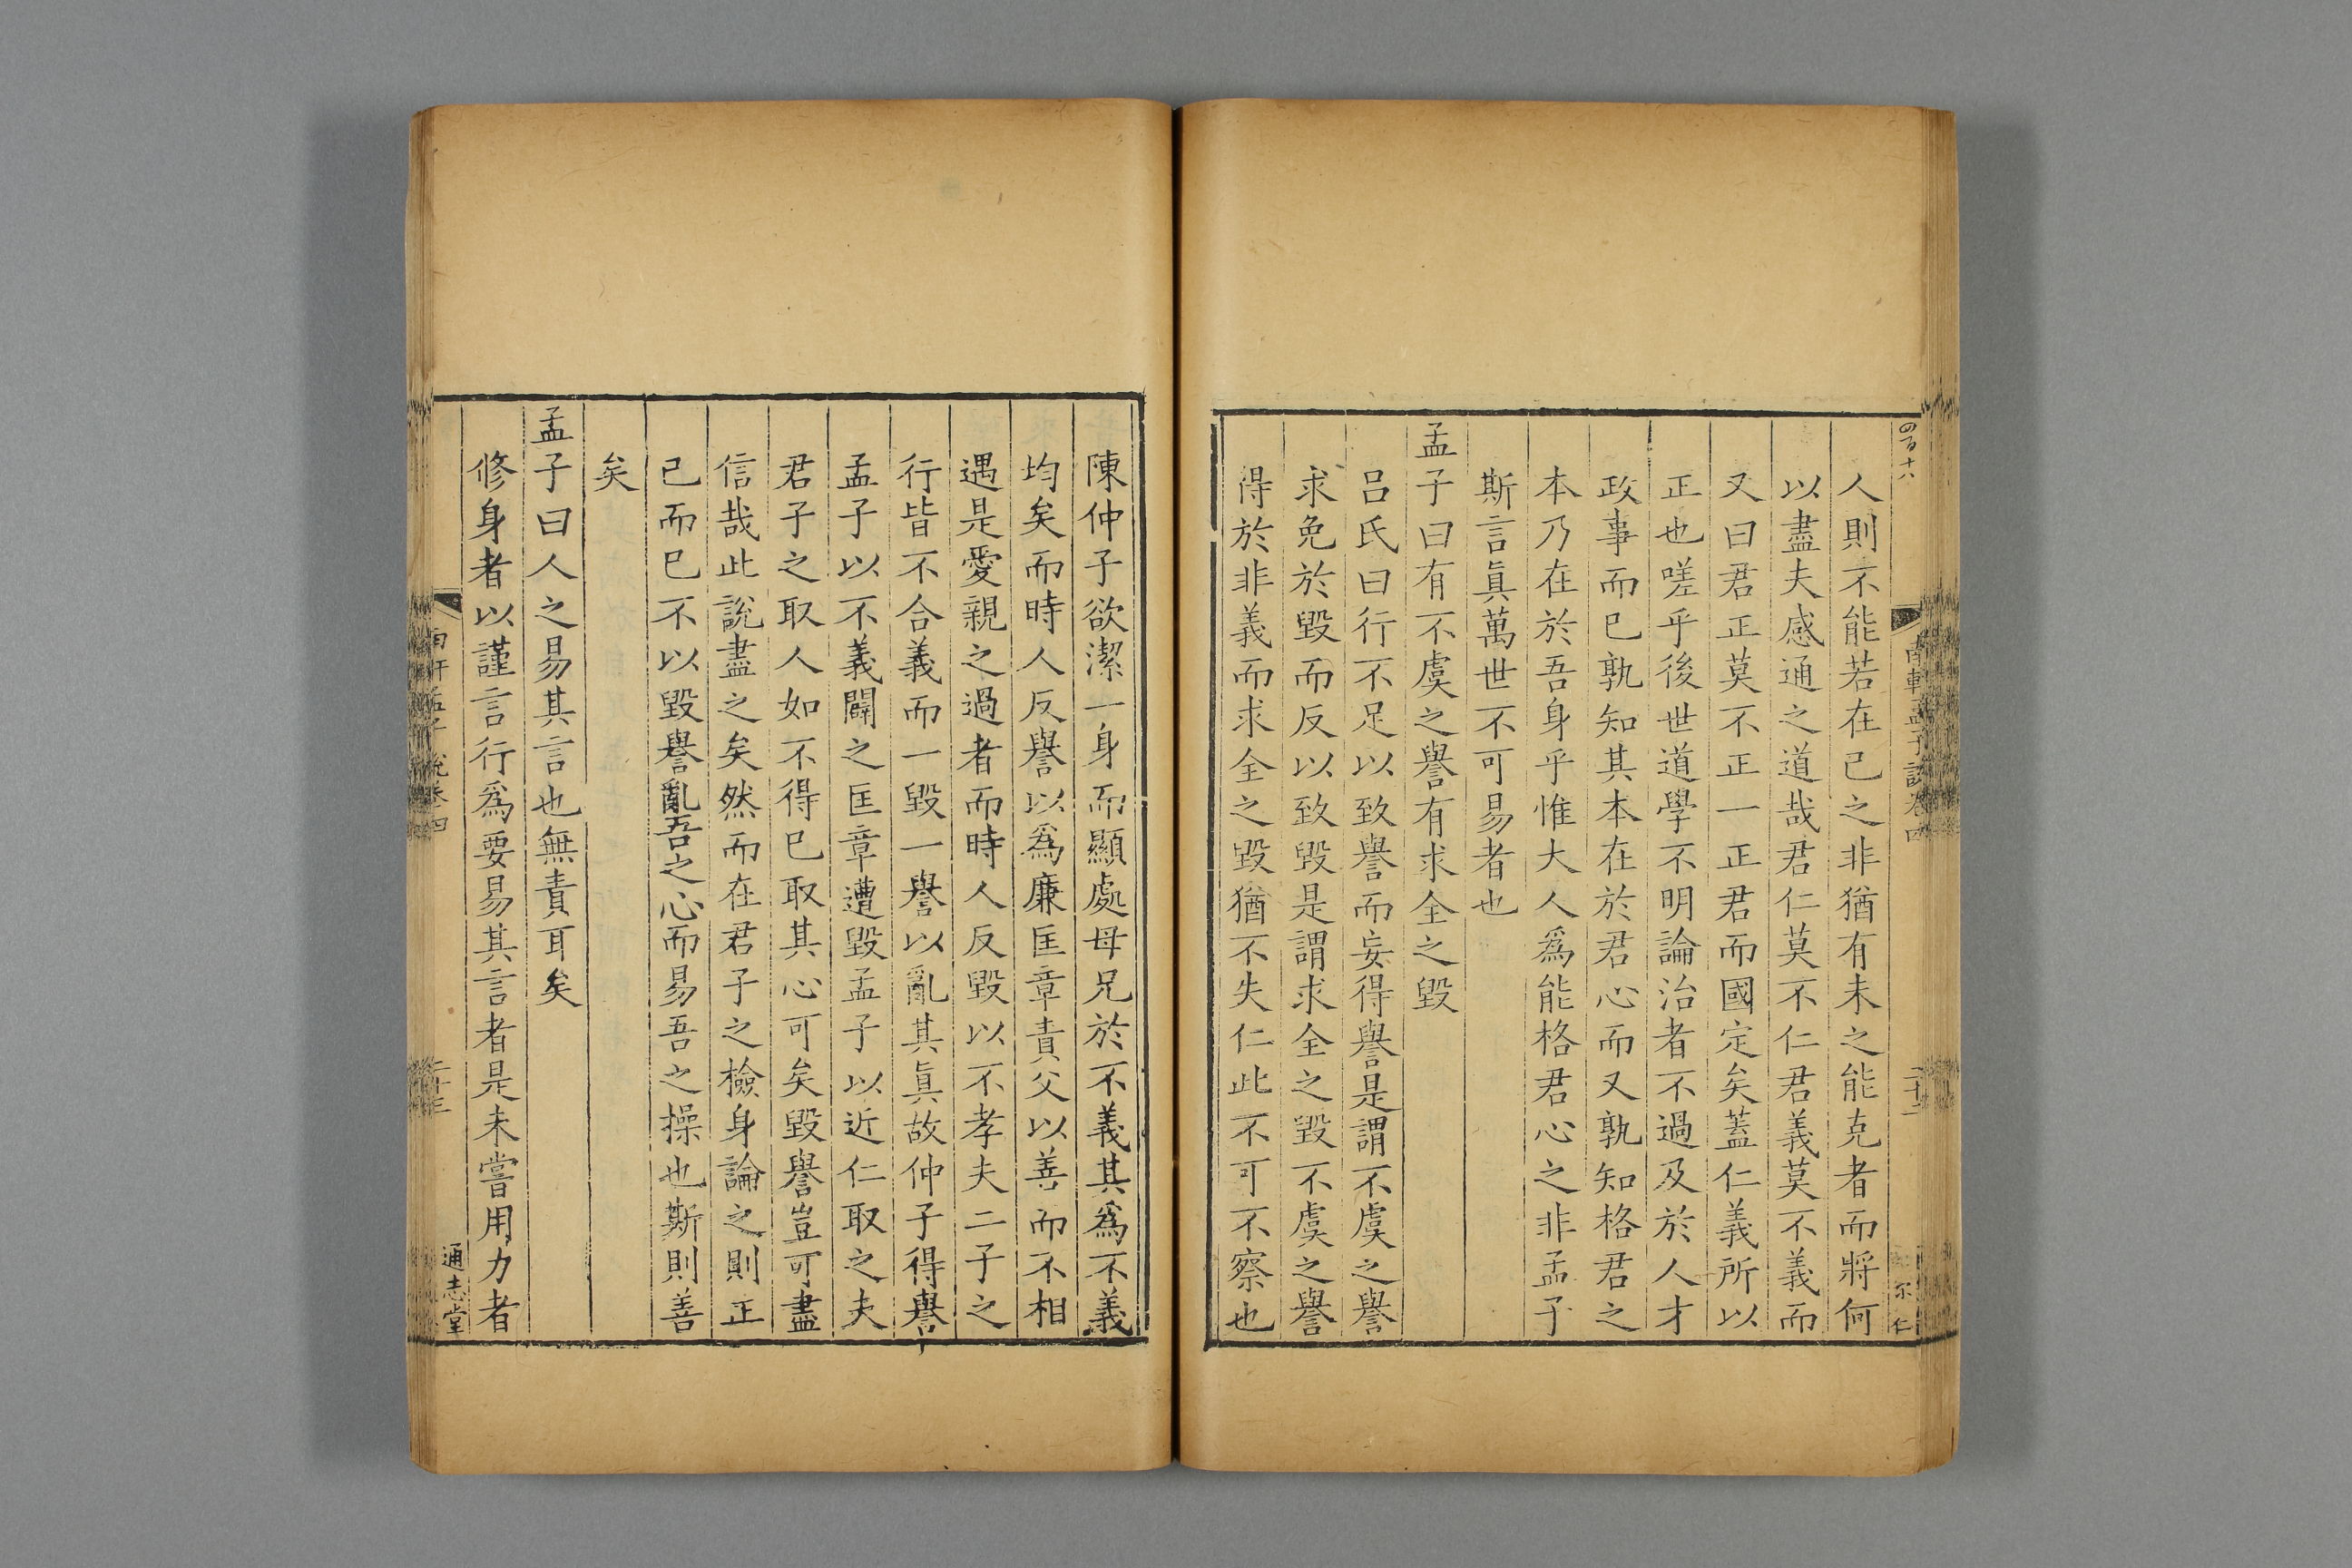 四百十八
南軒孟子說卷四
二十二
尔仁
人則不能若在己之非猶有未之能克者而將何
以盡夫感通之道哉君仁莫不仁君義莫不義而
又曰君正莫不正一正君而國定矣蓋仁義所以
正也嗟乎後世道學不明論治者不過及於人才
政事而已孰知其本在於君心而又孰知格君之
本乃在於吾身乎惟大人爲能格君心之非孟子
斯言眞萬世不可易者也
孟子曰有不虞之譽有求全之毀
呂氏曰行不足以致譽而妄得譽是謂不虞之譽
求免於毀而反以致毀是謂求全之毀不虞之譽
得於非義而求全之毀猶不失仁此不可不察也
陳仲子欲潔一身而顯處母兄於不義其爲不義
均矣而時人反譽以爲廉匡章責父以善而不相
遇是愛親之過者而時人反毀以不孝夫二子之
行皆不合義而一毀一譽以亂其眞故仲子得譽
孟子以不義闢之匡章遭毀孟子以近仁取之夫
君子之取人如不得已取其心可矣毀譽豈可盡
信哉此說盡之矣然而在君子之檢身論之則正
己而已不以毀譽亂吾之心而易吾之操也斯則善
矣
孟子曰人之易其言也無責耳矣
修身者以謹言行爲要易其言者是未嘗用力者
南軒孟子說卷四
二十三
通志堂